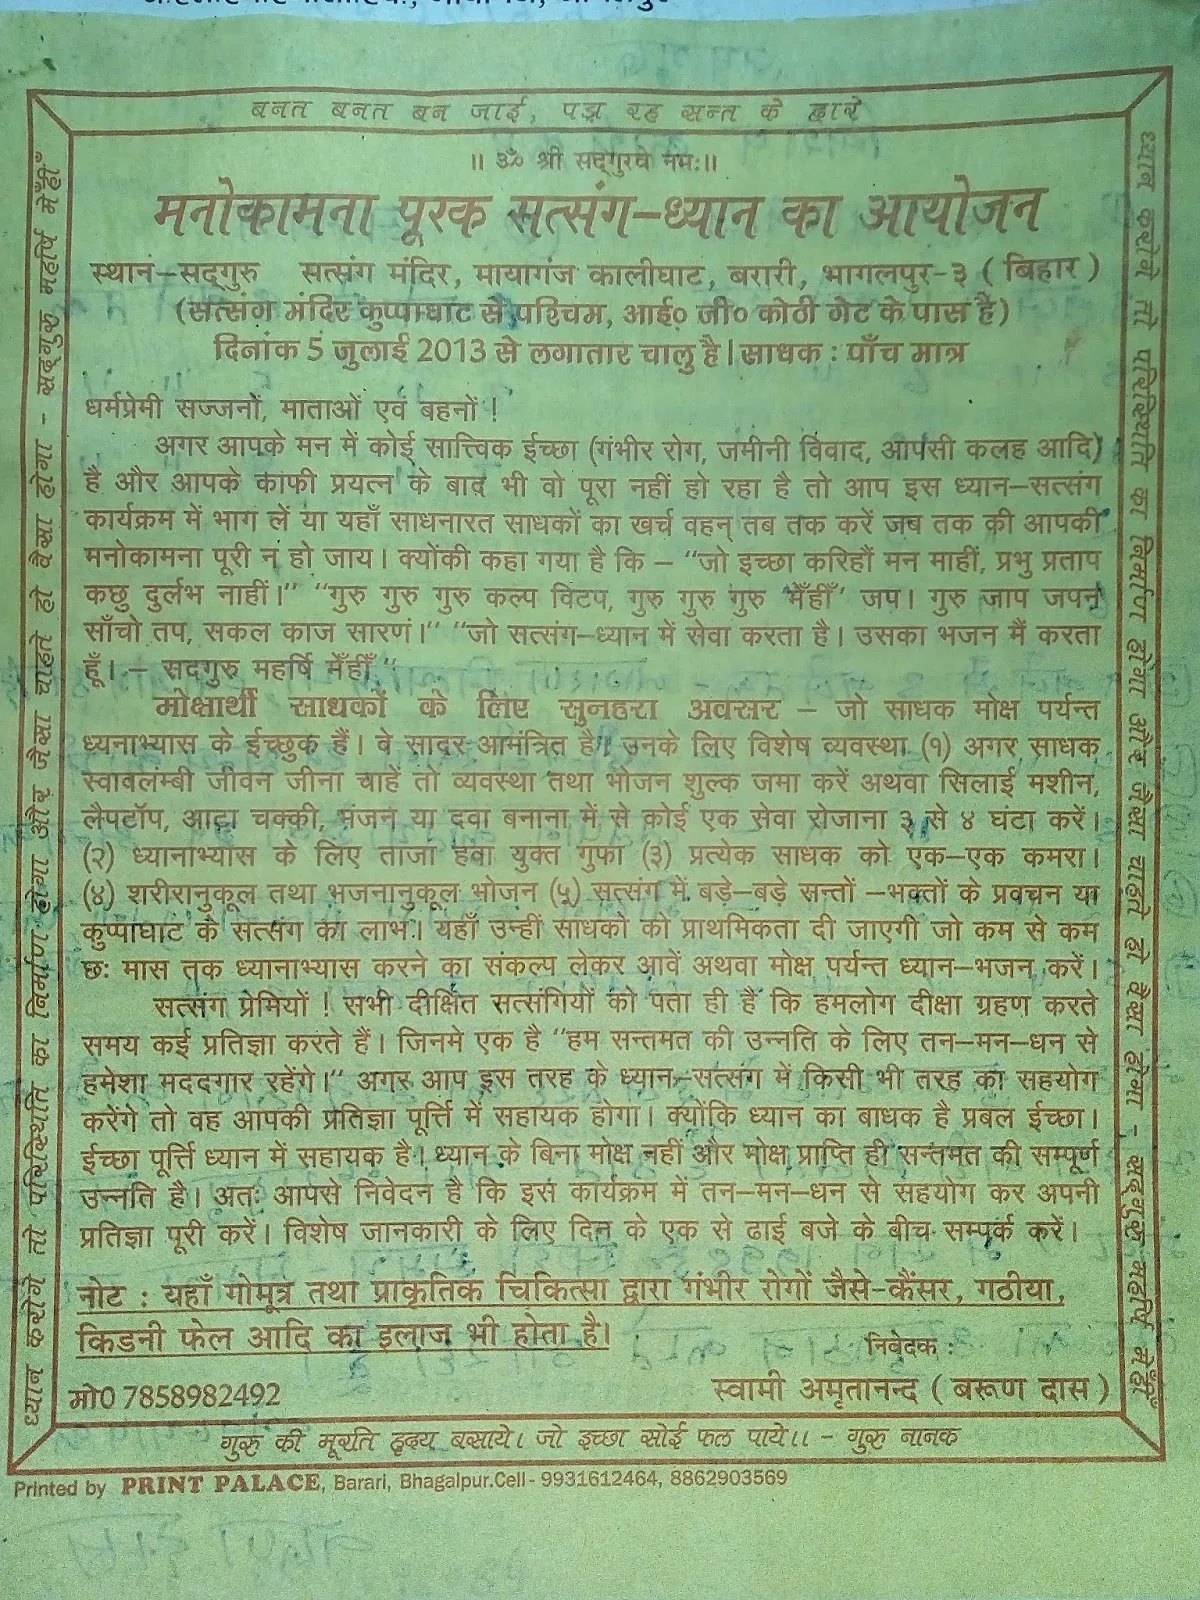 बनत बनत बन जाई, पड़ा रह सन्त के द्वारे
।। ॐ श्री सद्‌गुरवे नमः।।
मनोकामना पूरक सत्संग–ध्यान का आयोजन
स्थान–सद्‌गुरु सत्संग मंदिर, मायागंज कालीघाट, बरारी, भागलपुर-३ ( बिहार )
(सत्संग मंदिर कुप्पाघाट से पश्चिम, आई० जी० कोठी गेट के पास है)
दिनांक 5 जुलाई 2013 से लगातार चालु है। साधक : पाँच मात्र
धर्मप्रेमी सज्जनों, माताओं एवं बहनों !
अगर आपके मन में कोई सात्त्विक ईच्छा (गंभीर रोग, जमीनी विवाद, आपसी कलह आदि)
है और आपके काफी प्रयत्न के बाद भी वो पूरा नहीं हो रहा है तो आप इस ध्यान–सत्संग
कार्यक्रम में भाग लें या यहाँ साधनारत साधकों का खर्च वहन् तब तक करें जब तक की आपकी
मनोकामना पूरी न हो जाय। क्योंकी कहा गया है कि – "जो इच्छा करिहौं मन माहीं, प्रभु प्रताप
कछु दुर्लभ नाहीं।" "गुरु गुरु गुरु कल्प विटप, गुरु गुरु गुरु 'मेँहीँ' जप। गुरु जाप जपन
साँचो तप, सकल काज सारणं।" "जो सत्संग–ध्यान में सेवा करता है। उसका भजन मैं करता
हूँ। – सदगुरु महर्षि मेँहीँ "
मोक्षार्थी साधकों के लिए सुनहरा अवसर – जो साधक मोक्ष पर्यन्त
ध्यनाभ्यास के ईच्छुक हैं। वे सादर आमंत्रित है। उनके लिए विशेष व्यवस्था (१) अगर साधक
स्वावलंम्बी जीवन जीना चाहें तो व्यवस्था तथा भोजन शुल्क जमा करें अथवा सिलाई मशीन,
लैपटॉप, आटा चक्की, मंजन या दवा बनाना में से कोई एक सेवा रोजाना ३ से ४ घंटा करें।
(२) ध्यानाभ्यास के लिए ताजा हवा युक्त गुफा (३) प्रत्येक साधक को एक–एक कमरा।
(४) शरीरानुकूल तथा भजनानुकूल भोजन (५) सत्संग में बड़े–बड़े सन्तों –भक्तों के प्रवचन या
कुप्पाघाट के सत्संग का लाभ। यहाँ उन्हीं साधको को प्राथमिकता दी जाएगी जो कम से कम
छः मास तक ध्यानाभ्यास करने का संकल्प लेकर आवें अथवा मोक्ष पर्यन्त ध्यान–भजन करें।
सत्संग प्रेमियों ! सभी दीक्षित सत्संगियों को पता ही है कि हमलोग दीक्षा ग्रहण करते
समय कई प्रतिज्ञा करते हैं। जिनमे एक है "हम सन्तमत की उन्नति के लिए तन–मन–धन से
हमेशा मददगार रहेंगे।" अगर आप इस तरह के ध्यान–सत्संग में किसी भी तरह का सहयोग
करेंगे तो वह आपकी प्रतिज्ञा पूर्त्ति में सहायक होगा। क्योंकि ध्यान का बाधक है प्रबल ईच्छा।
ईच्छा पूर्त्ति ध्यान में सहायक है। ध्यान के बिना मोक्ष नहीं और मोक्ष प्राप्ति ही सन्तमत की सम्पूर्ण
उन्नति है। अतः आपसे निवेदन है कि इस कार्यक्रम में तन–मन–धन से सहयोग कर अपनी
प्रतिज्ञा पूरी करें। विशेष जानकारी के लिए दिन के एक से ढाई बजे के बीच सम्पर्क करें।
नोट : यहाँ गोमूत्र तथा प्राकृतिक चिकित्सा द्वारा गंभीर रोगों जैसे-कैंसर, गठीया,
किडनी फेल आदि का इलाज भी होता है।
निवेदक :
मो0 7858982492
स्वामी अमृतानन्द ( बरूण दास )
गुरु की मूरति हृदय बसाये। जो इच्छा सोई फल पाये।। - गुरु नानक
ध्यान करोगे तो परिस्थिति का निर्माण होगा और जैसा चाहते हो वैसा होगा - सद्‌गुरु महर्षि मेँहीँ
ध्यान करोगे तो परिस्थिति का निर्माण होगा और जैसा चाहते हो वैसा होगा - सद्‌गुरु महर्षि मेँहीँ
Printed by PRINT PALACE, Barari, Bhagalpur.Cell- 9931612464, 8862903569